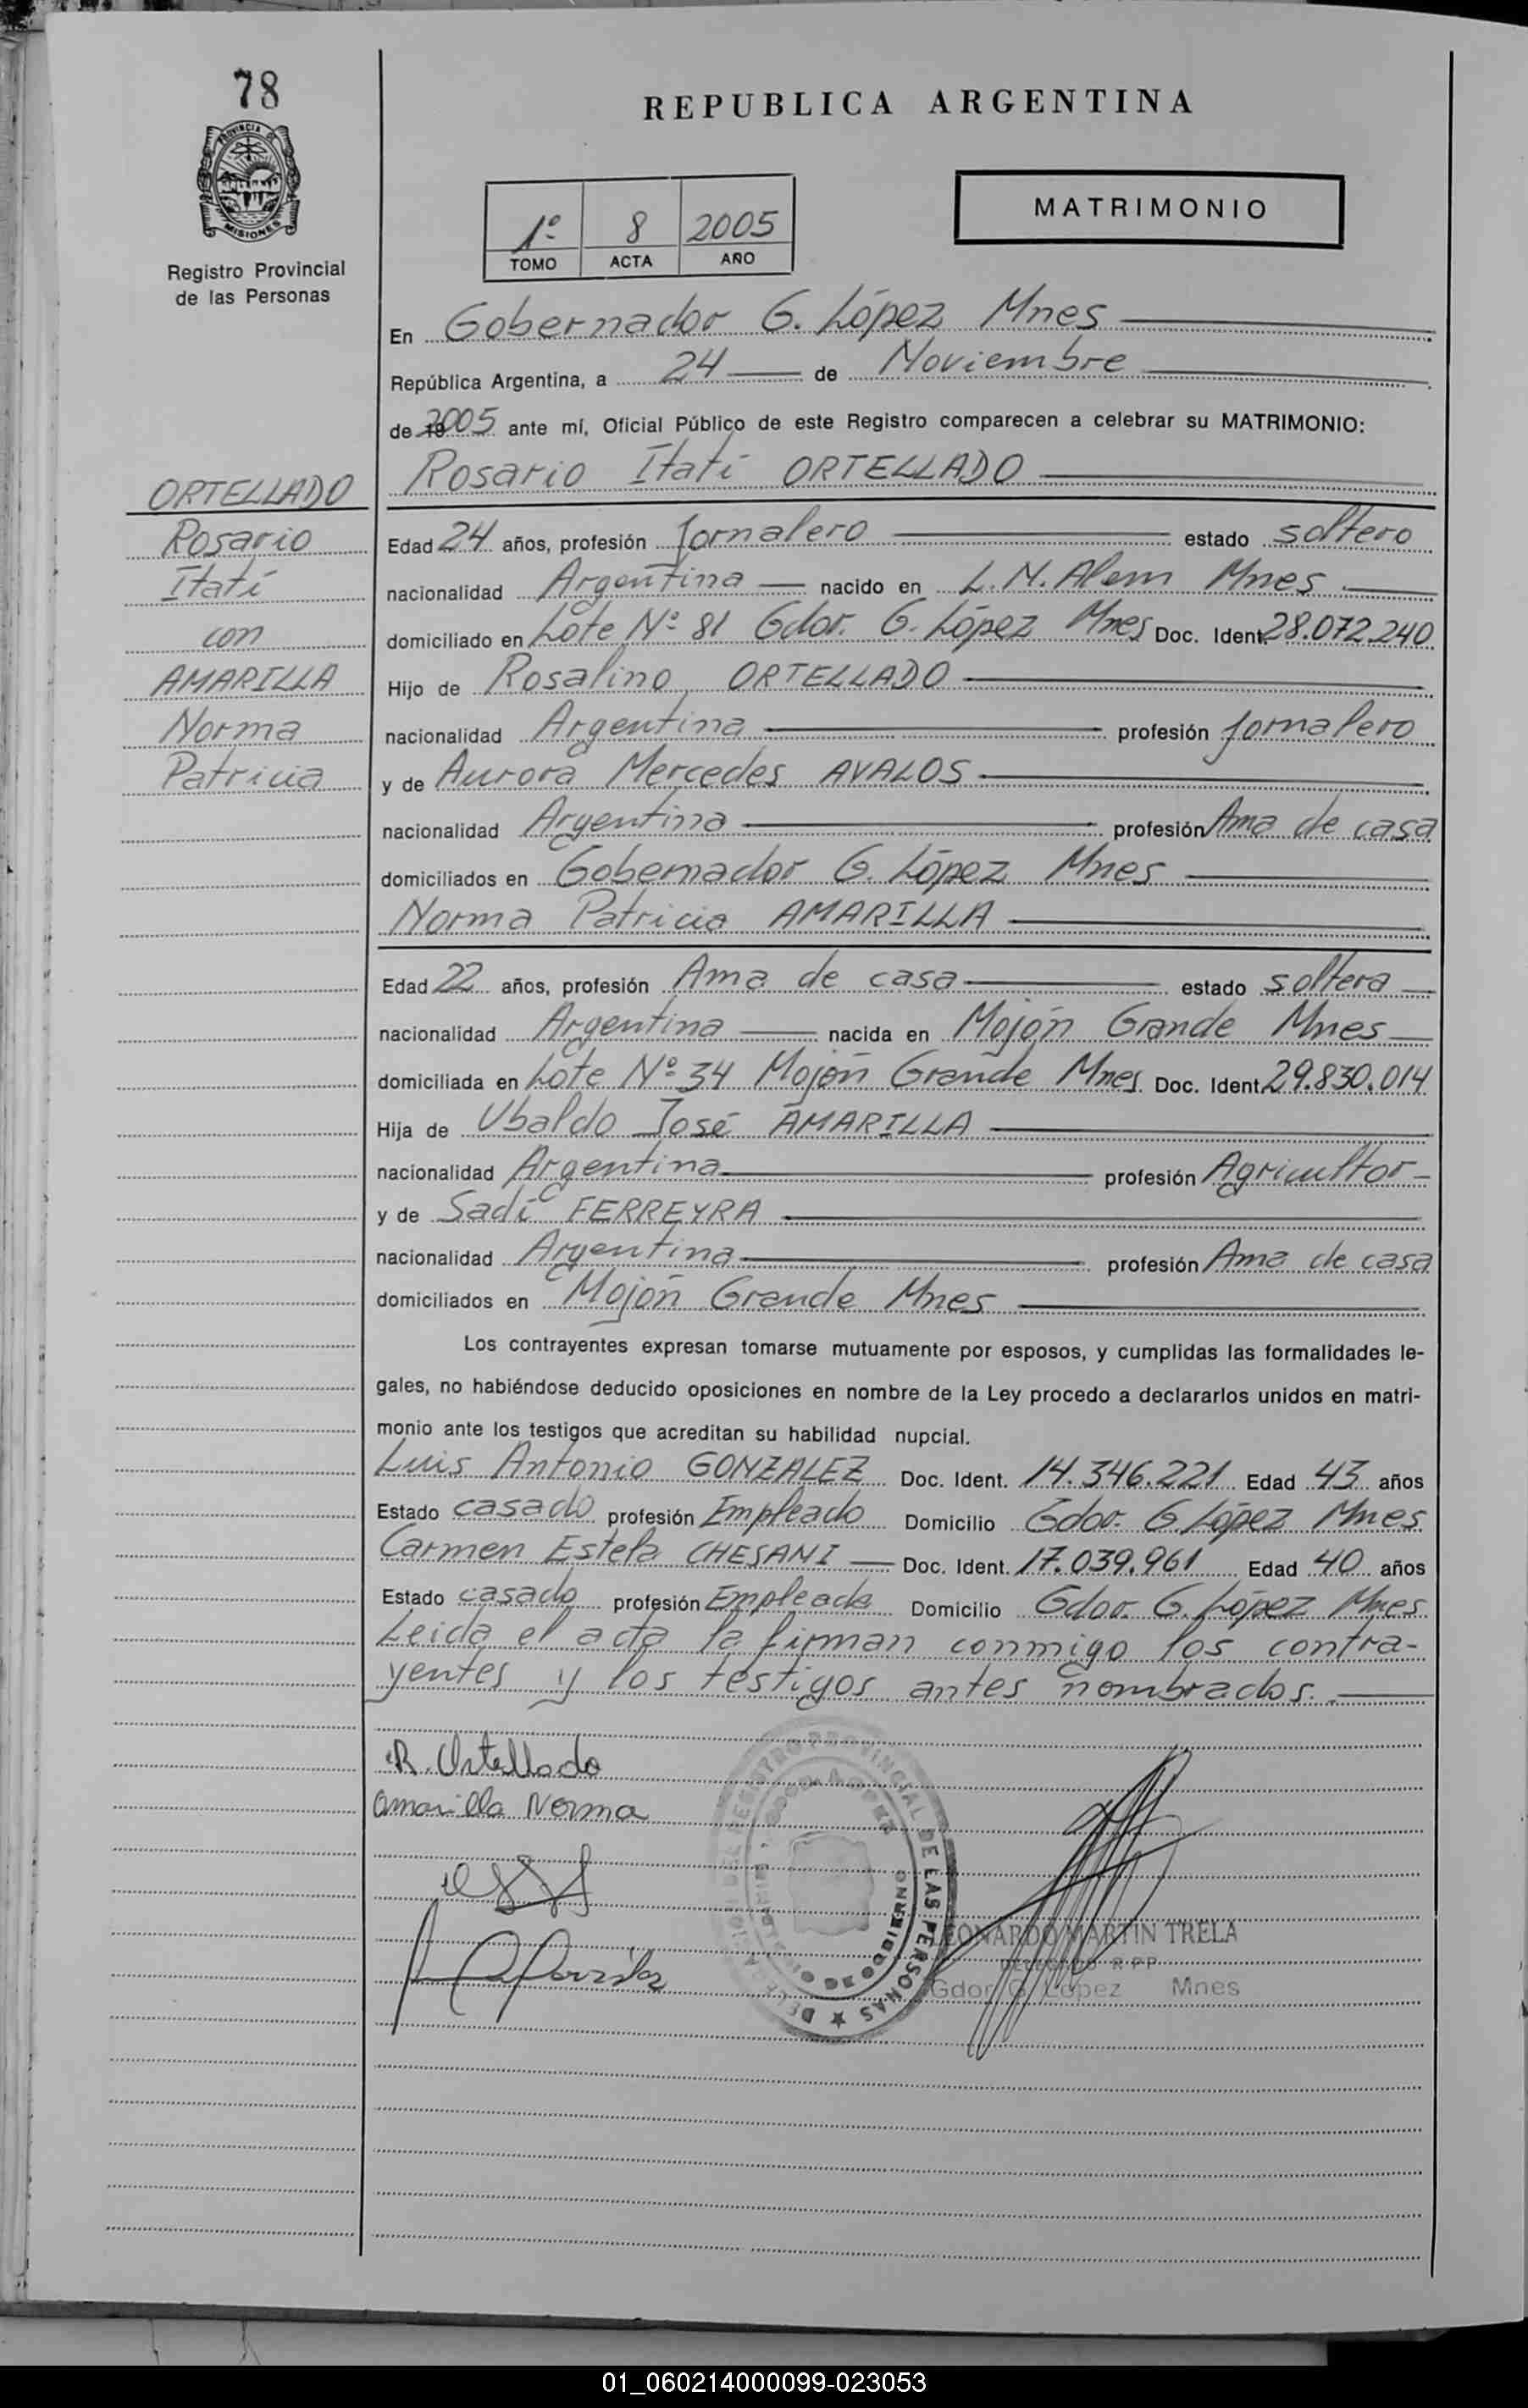 78
PROVINCIA DE
MISIONES
Registro Provincial
de las Personas
REPUBLICA ARGENTINA
1º 8 2005
TOMO ACTA AÑO
MATRIMONIO
ORTELLADO
Rosario
Itatí
con
AMARILLA
Norma
Patricia
En Gobernador G. López Mnes
República Argentina, a 24 de Noviembre
de 2005 ante mí, Oficial Público de este Registro comparecen a celebrar su MATRIMONIO:
Rosario Itatí ORTELLADO
Edad 24 años, profesión Jornalero estado soltero
nacionalidad Argentina nacido en L.N.Alem Mnes
domiciliado en Lote Nº 81 Gdor. G. López Mnes Doc. Ident. 28.072.240
Hijo de Rosalino ORTELLADO
nacionalidad Argentina profesión Jornalero
y de Aurora Mercedes AVALOS
nacionalidad Argentina profesión Ama de casa
domiciliados en Gobernador G. López Mnes
Norma Patricia AMARILLA
Edad 22 años, profesión Ama de casa estado soltera
nacionalidad Argentina nacida en Mojón Grande Mnes
domiciliada en Lote Nº 34 Mojón Grande Mnes Doc. Ident. 29.830.014
Hija de Ubaldo José AMARILLA
nacionalidad Argentina profesión Agricultor
y de Sadí FERREYRA
nacionalidad Argentina profesión Ama de casa
domiciliados en Mojón Grande Mnes
Los contrayentes expresan tomarse mutuamente por esposos, y cumplidas las formalidades le-
gales, no habiéndose deducido oposiciones en nombre de la Ley procedo a declararlos unidos en matri-
monio ante los testigos que acreditan su habilidad nupcial.
Luis Antonio GONZALEZ Doc. Ident. 14.346.221 Edad 43 años
Estado casado profesión Empleado Domicilio Gdor. G López Mnes
Carmen Estela CHESANI Doc. Ident. 17.039.961 Edad 40 años
Estado casado profesión Empleada Domicilio Gdor. G. López Mnes
Leida el acta la firman conmigo los contra-
yentes y los testigos antes nombrados.
R. Ortellado
Amarilla Norma
REGISTRO PROVINCIAL DE LAS PERSONAS
GOBIERNO
MARTIN TRELA
DELEGADO R PP
Gdor G Lopez Mnes
01_060214000099-023053